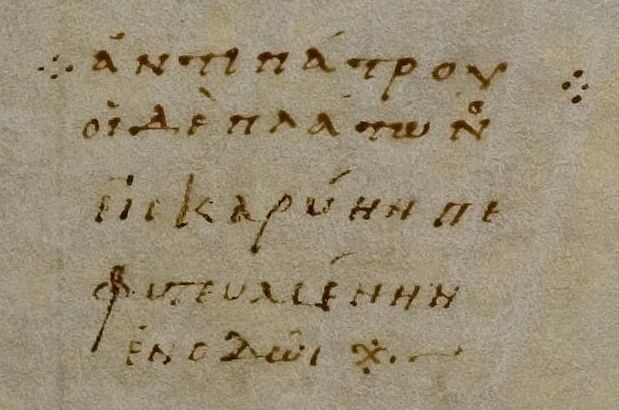 ⁘ ἀντιπάτρου ⁘
οἱ δὲ πλάτωνο
εἰς καρύην πε
φυτευμένην
ἐν ὁδῶι ※ ~